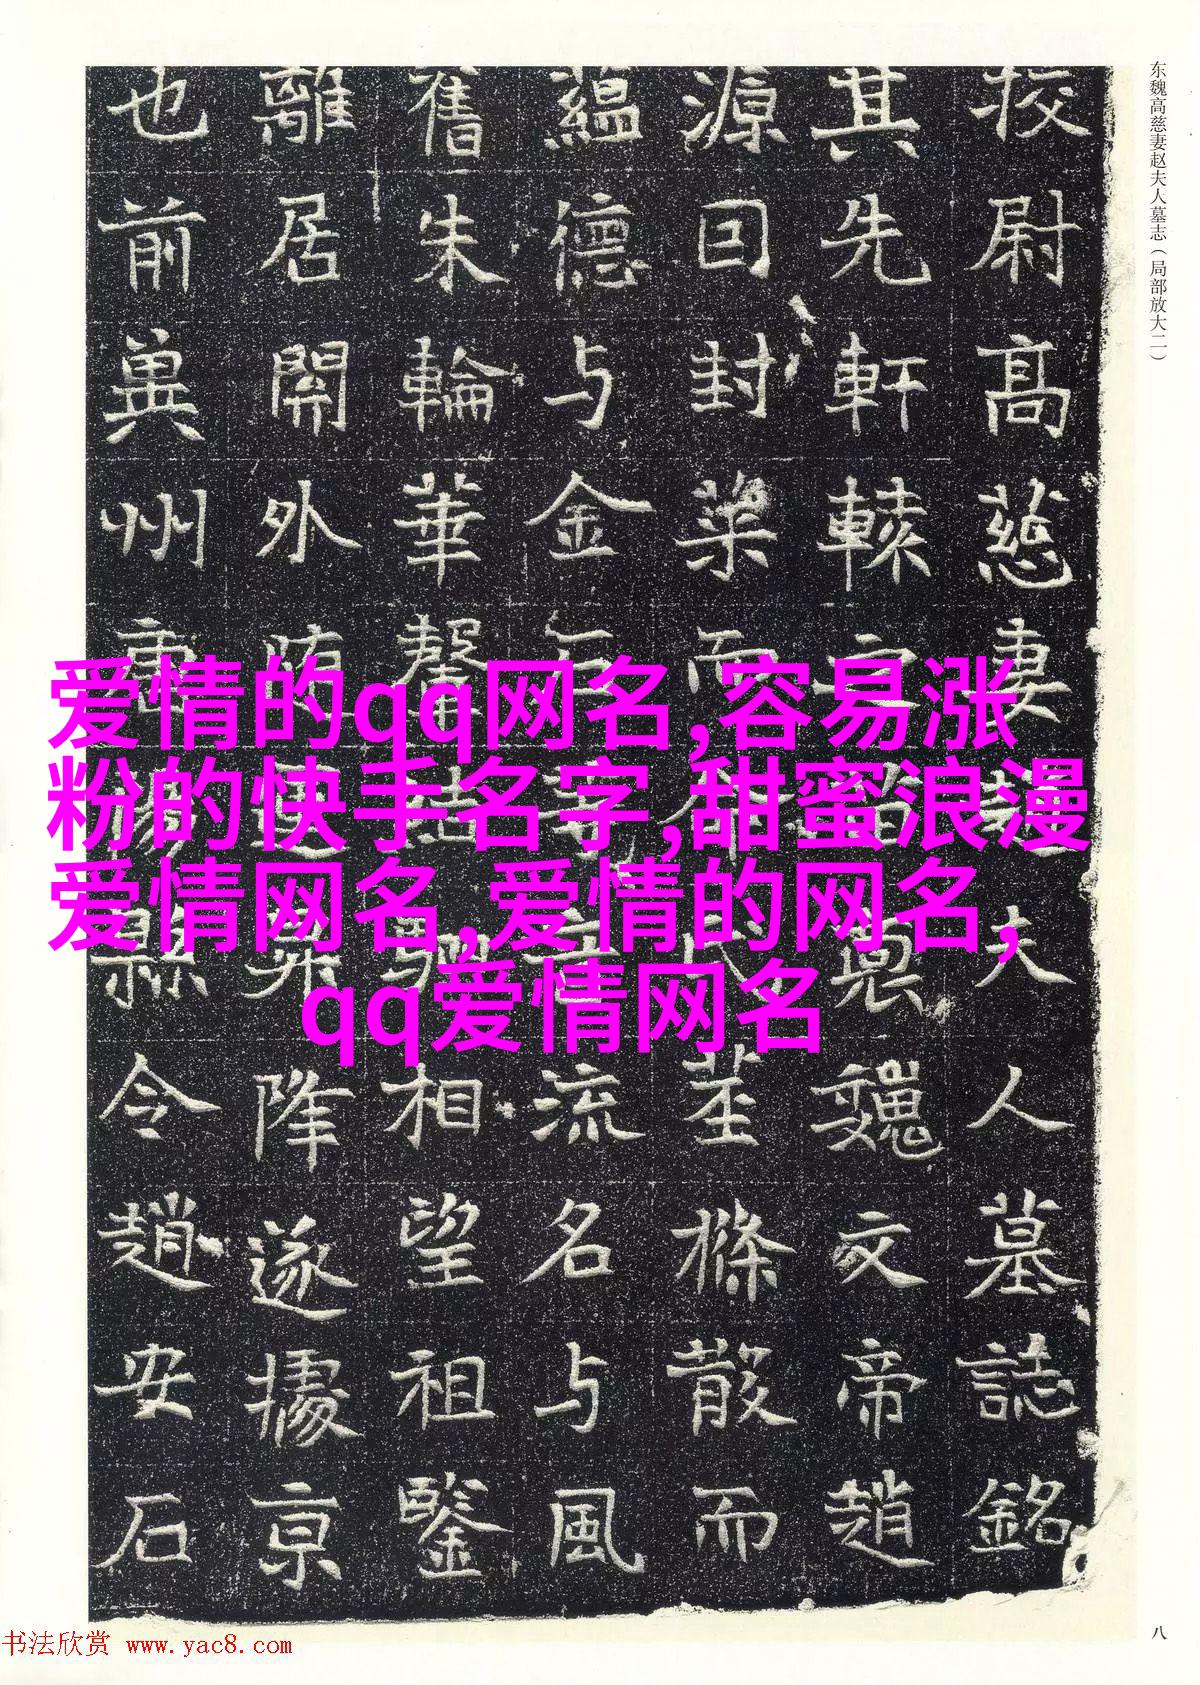 东魏高慈妻赵夫人墓志（局部放大二）
挍尉髙慈妻夫人墓誌銘
其先軒轅之苗魏文帝趙
源囙封而茎條散而
蘊德与金石流名与風
舊朱輪華馨結駟相望祖鑒
離居關外随降遂據京
也前兾州縣令趙安石
爱情的qq网名,容易涨
粉的快手名字,甜蜜浪漫
爱情网名,爱情的网名,
qq爱情网名
八
书法欣赏 www.yac8.com